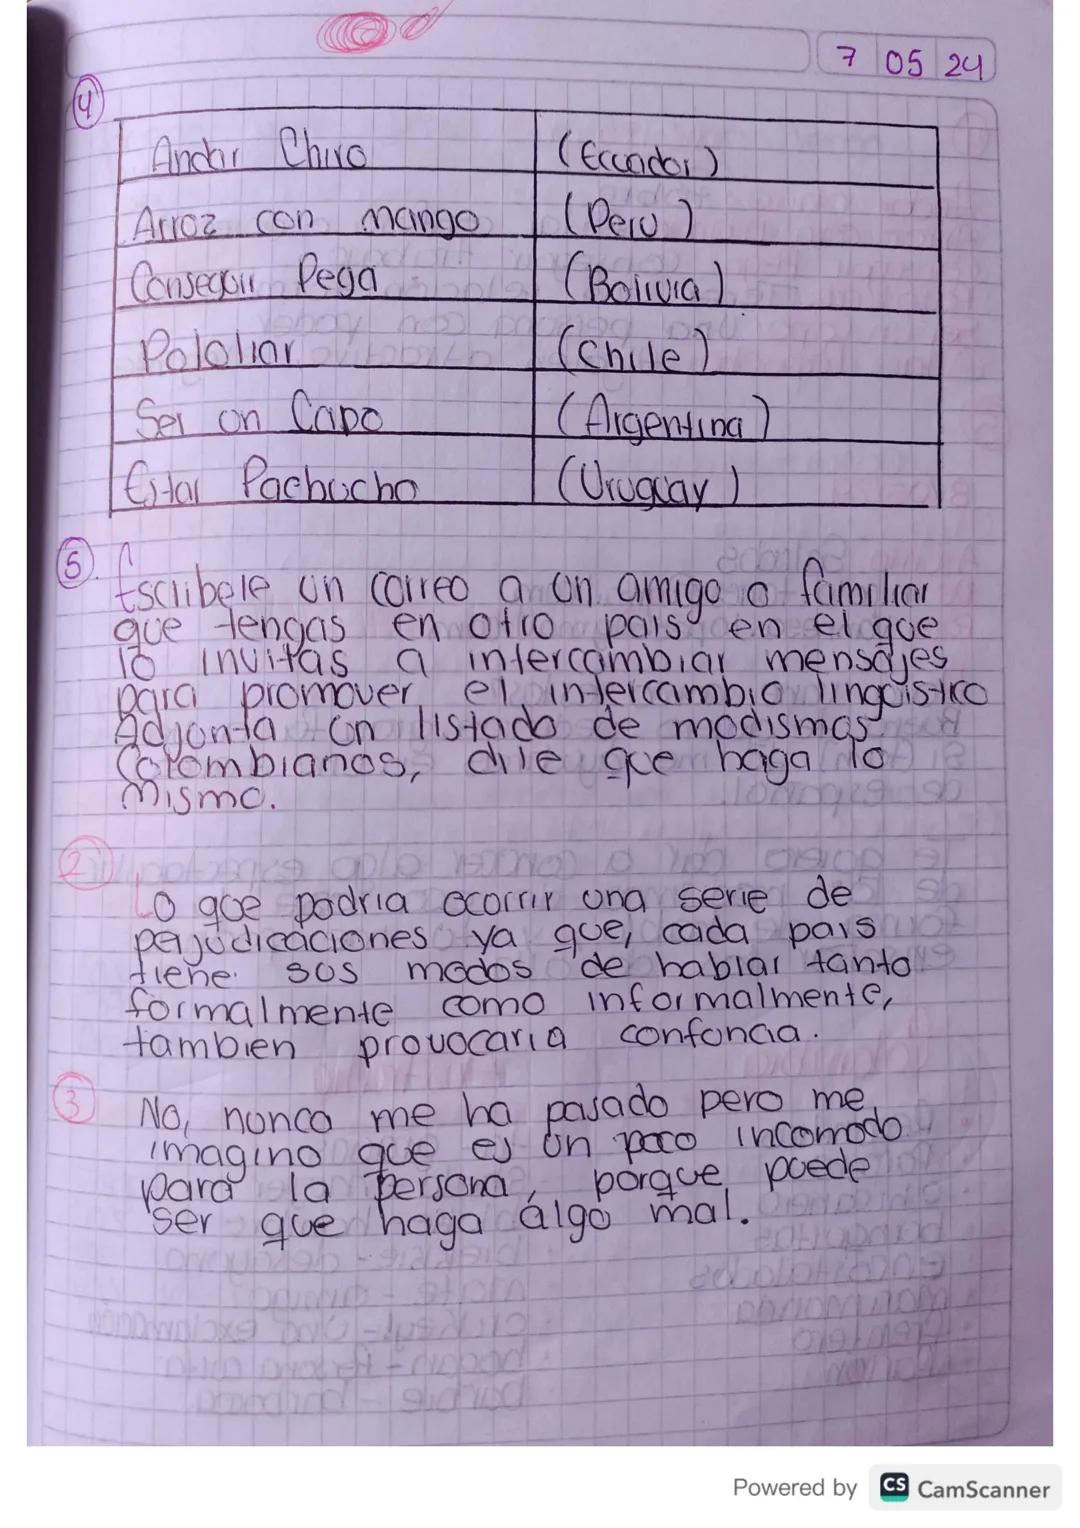 7 05 24
4
Andar Chiro (Ecuador)
Arroz con mango (Perú)
Conseguir Pega (Bolivia)
Pololiar (Chile)
Ser un Capo (Argentina)
Estar Pachucho (Uruguay)
5. Escribele un correo a un amigo o familiar
que tengas en otro pais en el que
lo invitas a intercambiar mensajes
para promover el intercambio linguistico
Adjunta un listado de modismos
Colombianos, dile que haga lo
mismo.
2 Lo que podria ocurrir una serie de
perjudicaciones ya que, cada pais
tiene sus modos de hablar tanto
formalmente como informalmente,
tambien provocaria confuncia.
3 No, nunca me ha pasado pero me
imagino que es un poco incomodo
para la persona, porque puede
ser que haga algo mal.
Powered by CS CamScanner